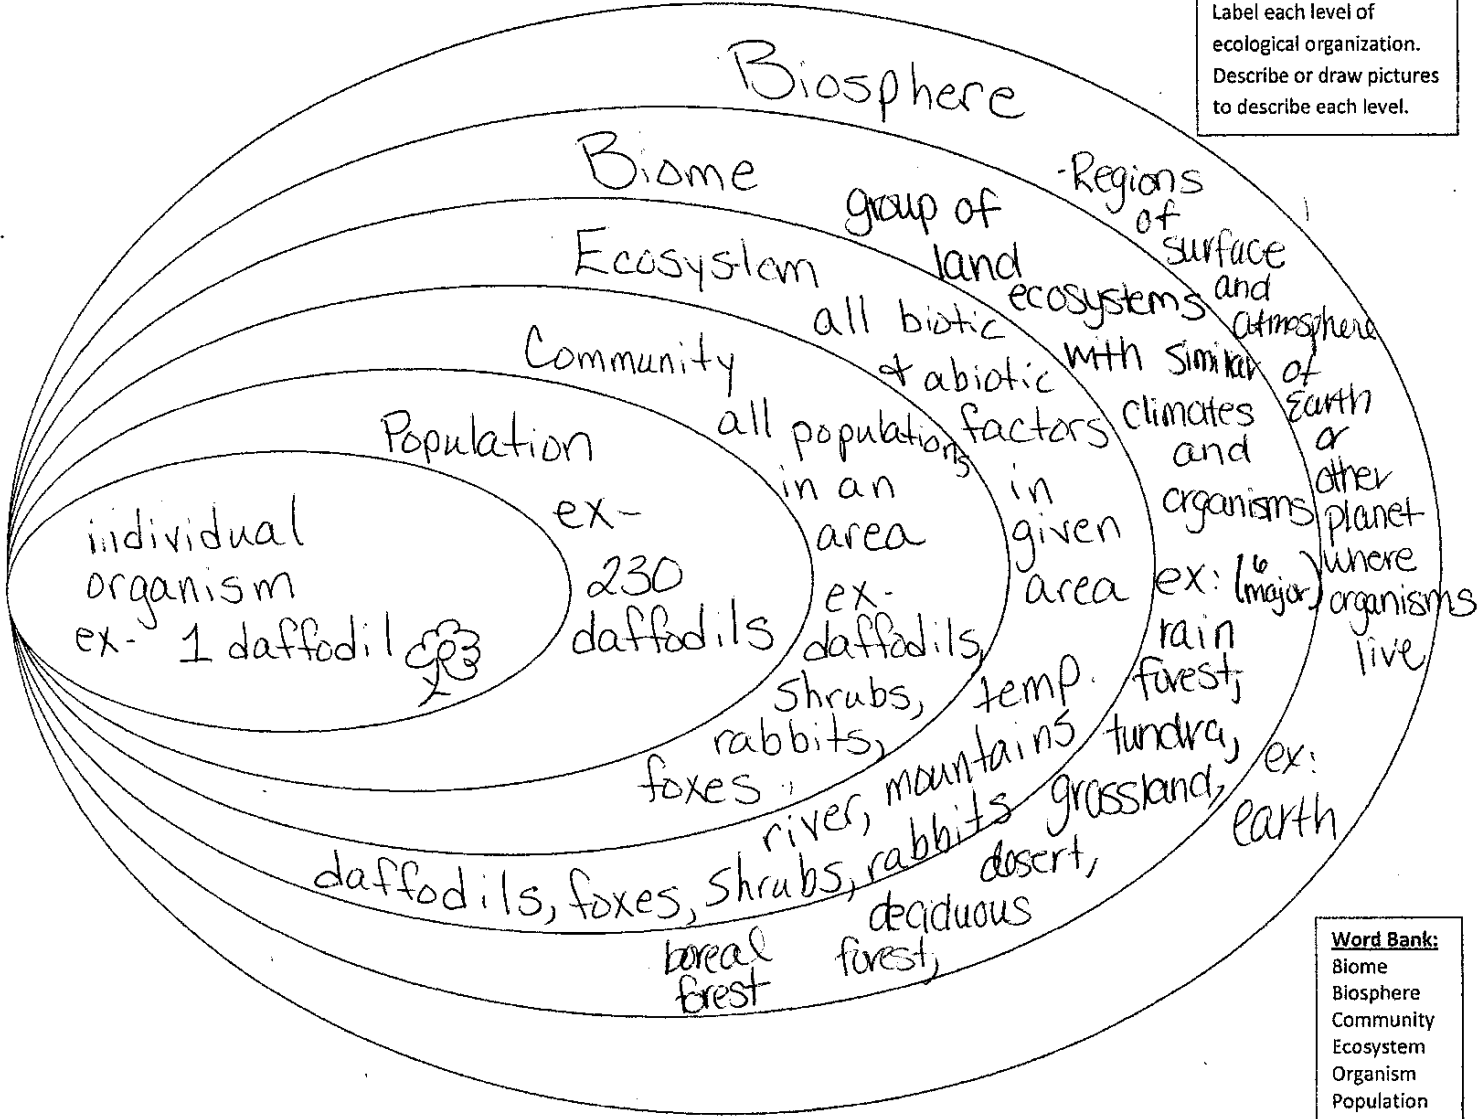 Label each level of
ecological organization.
Describe or draw pictures
to describe each level.
Biosphere
-Regions
of
surface
and
atmosphere
of
Earth
or
other
planet
where
organisms
live
ex:
earth
Biome
group of
land
ecosystems
with similar
climates
and
organisms
ex: (6
major)
rain
forest,
tundra,
grassland,
desert,
deciduous
forest,
boreal
forest
Ecosystem
all biotic
& abiotic
factors
in
given
area
temp.
mountains
river,
daffodils, foxes, shrubs, rabbits
Community
all populations
in an
area
ex-
daffodils,
shrubs,
rabbits,
foxes
Population
ex-
230
daffodils
individual
organism
ex- 1 daffodil
Word Bank:
Biome
Biosphere
Community
Ecosystem
Organism
Population